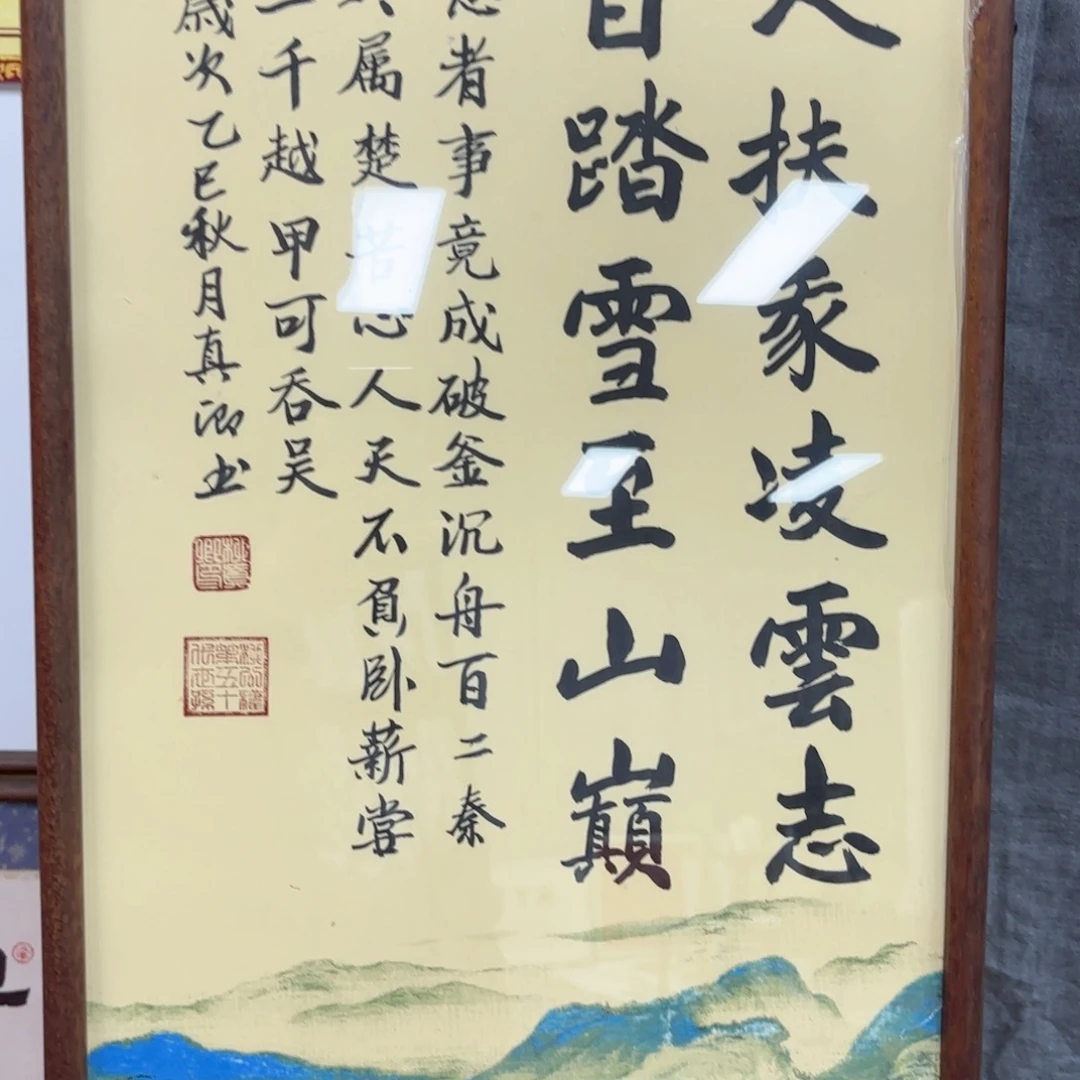 人扶凌雲志
自踏雪至山巔
志者事竟成破釜沉舟百二秦
属楚苦心人天不負卧薪嘗
三千越甲可吞吴
歲次乙巳秋月真卿书